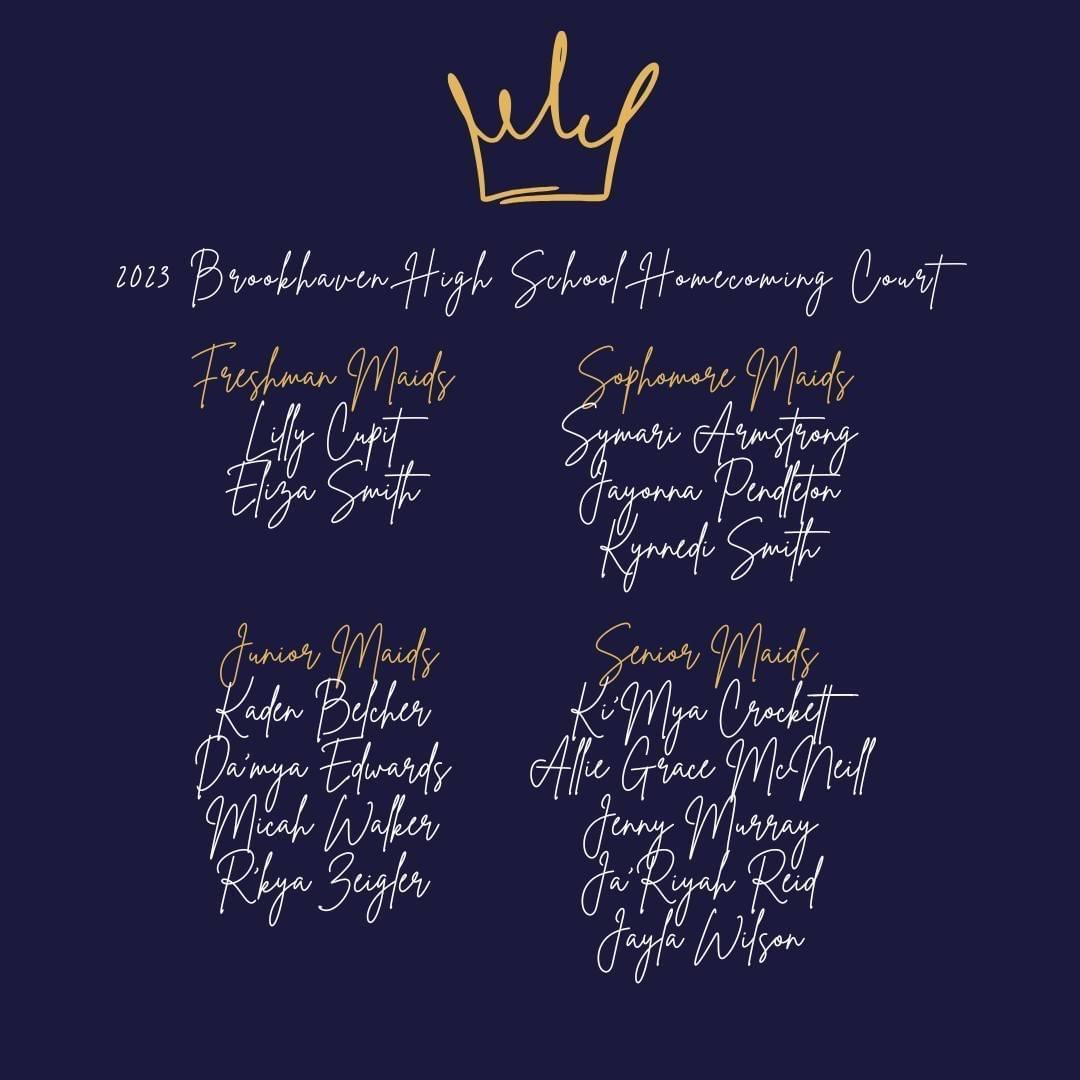 2023 Brookhaven High School Homecoming Court
Freshman Maids
Lilly Cupit
Eliza Smith
Sophomore Maids
Symari Armstrong
Jayonna Pendleton
Kynnedi Smith
Junior Maids
Kaden Belcher
Da'mya Edwards
Micah Walker
R'kya Zeigler
Senior Maids
Ki'Mya Crockett
Allie Grace McNeill
Jenny Murray
Ja'Riyah Reid
Jayla Wilson